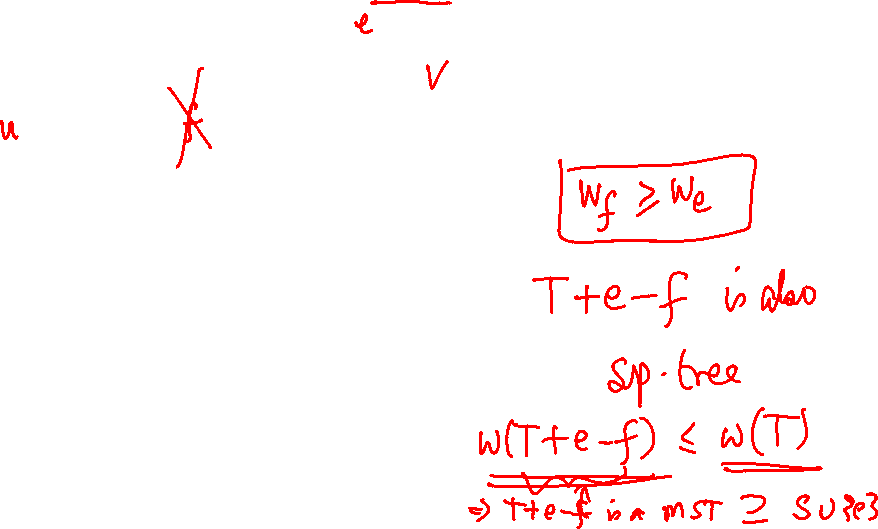 e
v
u f
w_f ≥ w_e
T+e-f is also
sp. tree
w(T+e-f) ≤ w(T)
⇒ T+e-f is a MST ⊇ S∪{e}